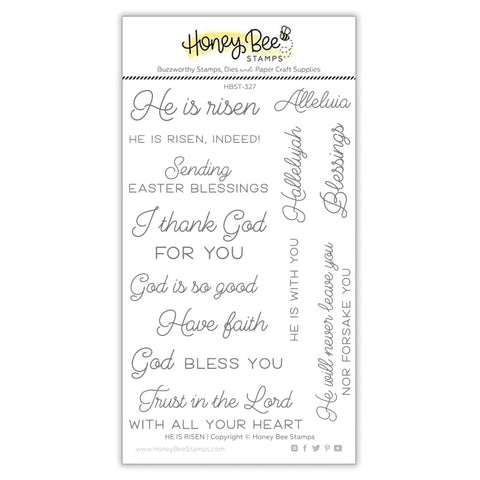 Honey Bee
STAMPS
Buzzworthy Stamps, Dies and Paper Craft Supplies
HBST-327
He is risen
Alleluia
HE IS RISEN, INDEED!
Sending
EASTER BLESSINGS
Hallelujah
Blessings
I thank God
FOR YOU
God is so good
Have faith
God BLESS YOU
HE IS WITH YOU
He will never leave you
NOR FORSAKE YOU
Trust in the Lord
WITH ALL YOUR HEART
HE IS RISEN | Copyright © Honey Bee Stamps
www.HoneyBeeStamps.com